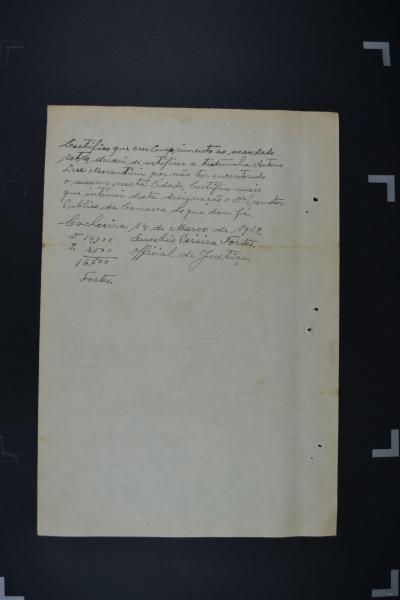 Certifico que em cumprimento ao mandado
retro, deixei de notificar a testemunha Antonio
José por não ter encontrado
o mesmo nesta Cidade. Certifico mais
que intimei desta designação o Dr. Promotor
Publico da Comarca do que dou fé.
Cachoeira 14 de Março de 1938.
D. 14,000 Eusebio Pereira Fortes.
2.500 Official de Justiça.
16,500
Fortes.